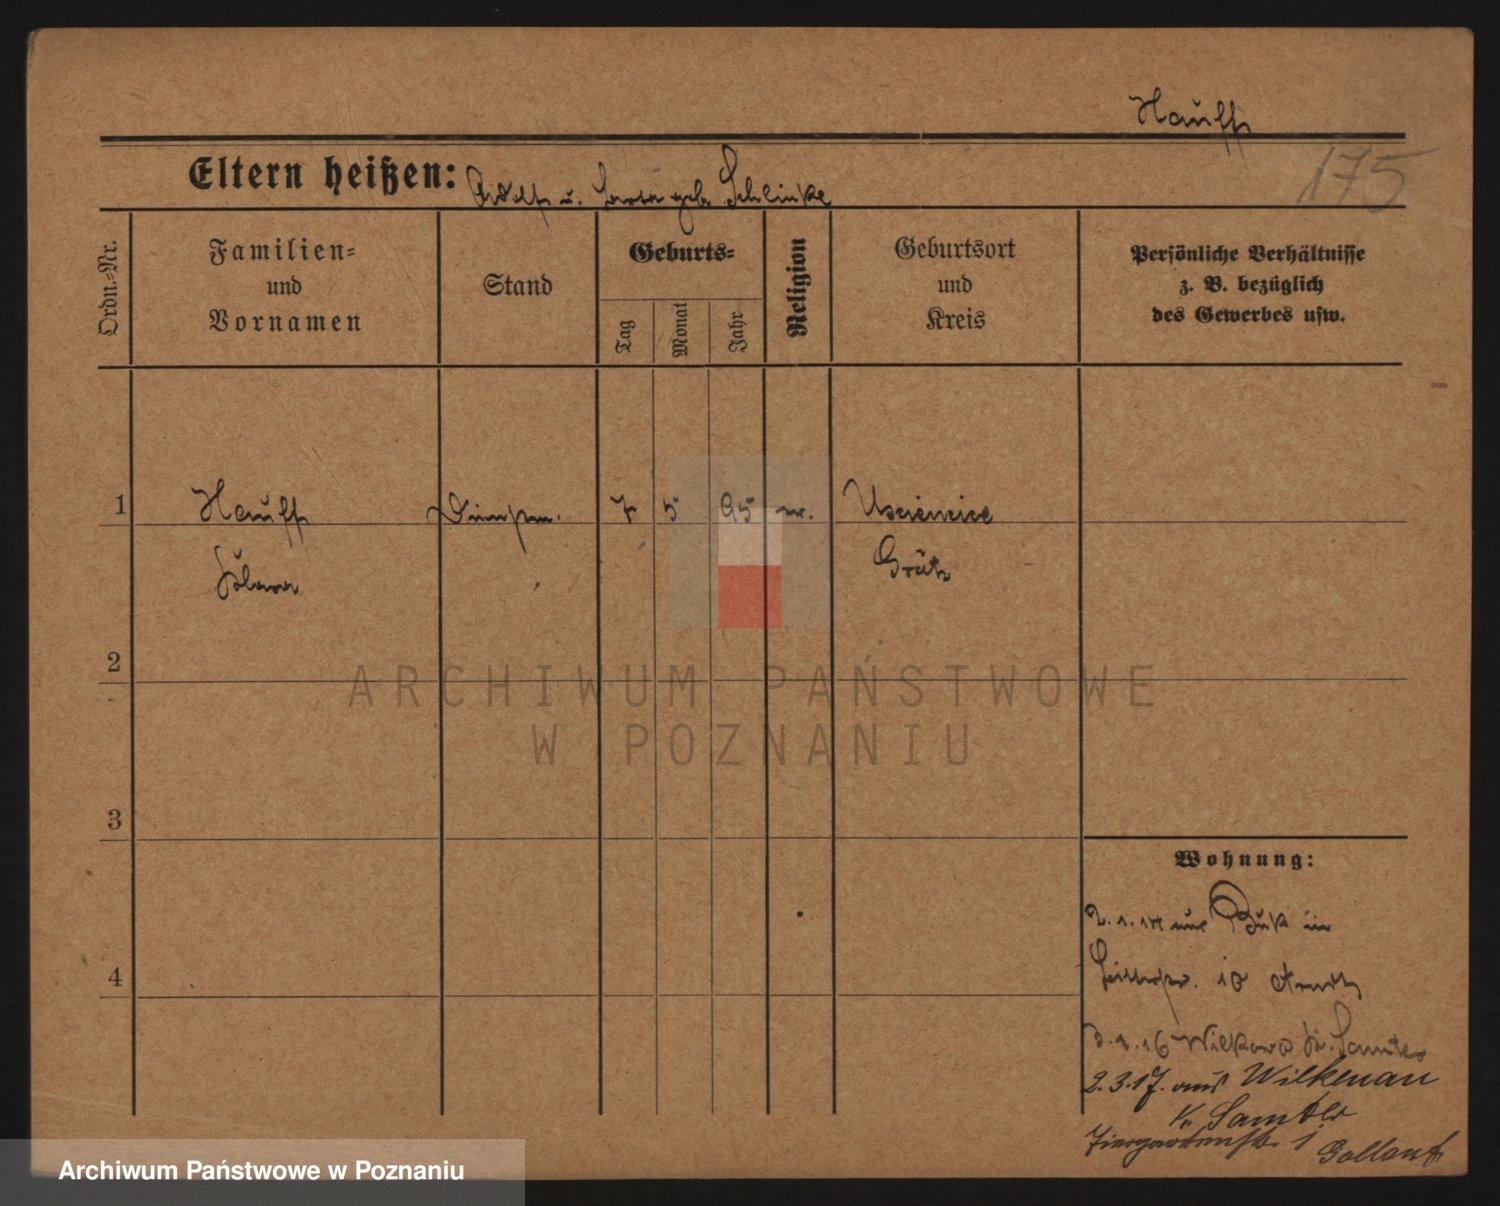 Hauff
175
Eltern heißen: Adolf u. geb. Schlinke
Ordn.-Nr.
Familien-
und
Vornamen
Stand
Geburts-
Tag
Monat
Jahr
Religion
Geburtsort
und
Kreis
Persönliche Verhältnisse
z. B. bezüglich
des Gewerbes usw.
1 Hauff 7 5 95 Usciencice
Grätz
2
3
4
Wohnung:
2.1.14 aus Buk in
10
3.1.16 Wilkowo Kr. Samter
2.3.17. aus Wilkenau
Kr. Samter
Tiergartenstr. 1
ARCHIWUM PAŃSTWOWE
W POZNANIU
Archiwum Państwowe w Poznaniu